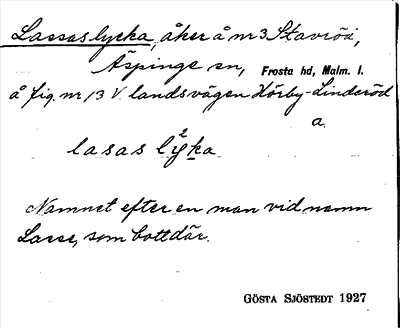 Lassaslycka, åker å nr 3 Stavröd,
Äspinge sn, Frosta hd, Malm. l.
å fig. nr 13 V. landsvägen Hörby-Linderöd
a.
2
lasas lyka
Namnet efter en man vid namn
Lasse, som bott där.
GÖSTA SJÖSTEDT 1927